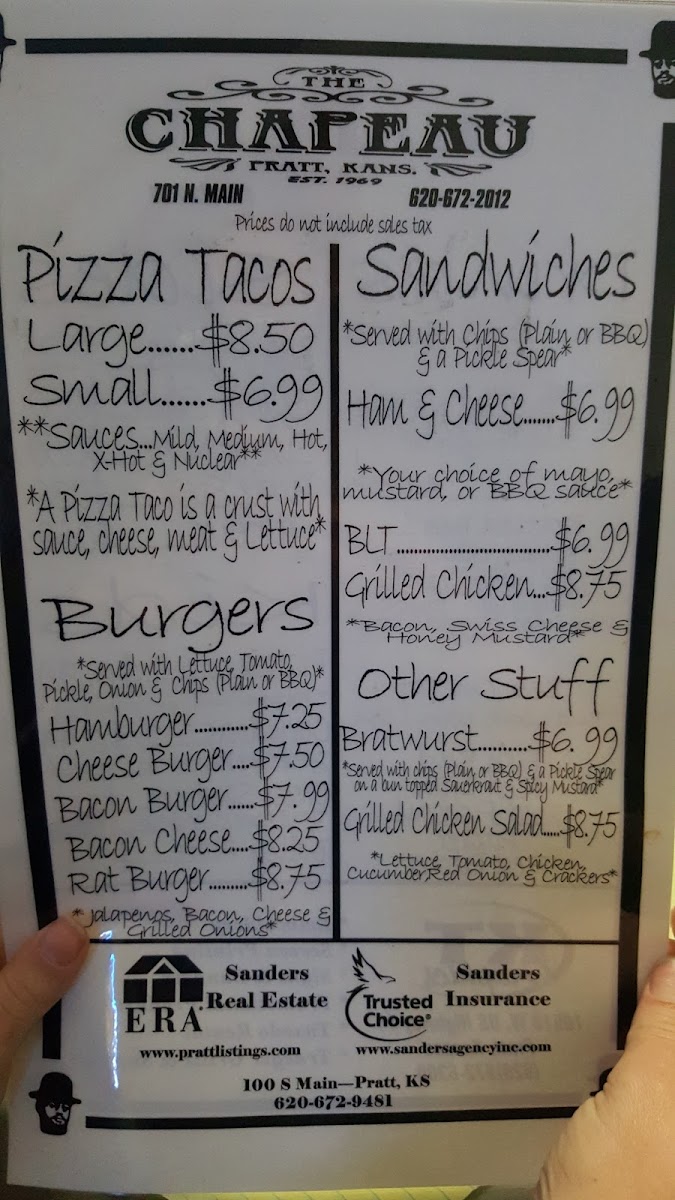 THE
CHAPEAU
PRATT, KANS.
EST. 1969
701 N. MAIN
620-672-2012
Prices do not include sales tax
Pizza Tacos
Large......$8.50
Small.......$6.99
**Sauces...Mild, Medium, Hot,
X-Hot & Nuclear**
*A Pizza Taco is a crust with
sauce, cheese, meat & Lettuce*
Burgers
*Served with Lettuce, Tomato,
Pickle, Onion & Chips (Plain or BBQ)*
Hamburger............$7.25
Cheese Burger....$7.50
Bacon Burger......$7.99
Bacon Cheese....$8.25
Rat Burger.........$8.75
*Jalapenos, Bacon, Cheese &
Grilled Onions*
Sandwiches
*Served with Chips (Plain or BBQ)
& a Pickle Spear*
Ham & Cheese.......$6.99
*Your choice of mayo,
mustard, or BBQ sauce*
BLT...................................$6.99
Grilled Chicken...$8.75
*Bacon, Swiss Cheese &
Honey Mustard*
Other Stuff
Bratwurst..........$6.99
*Served with chips (Plain or BBQ) & a Pickle Spear
on a bun topped Sauerkraut & Spicy Mustard*
Grilled Chicken Salad.....$8.75
*Lettuce, Tomato, Chicken,
Cucumber,Red Onion & Crackers*
ERA
Sanders
Real Estate
www.prattlistings.com
Trusted
Choice®
Sanders
Insurance
www.sandersagencyinc.com
100 S Main—Pratt, KS
620-672-9481